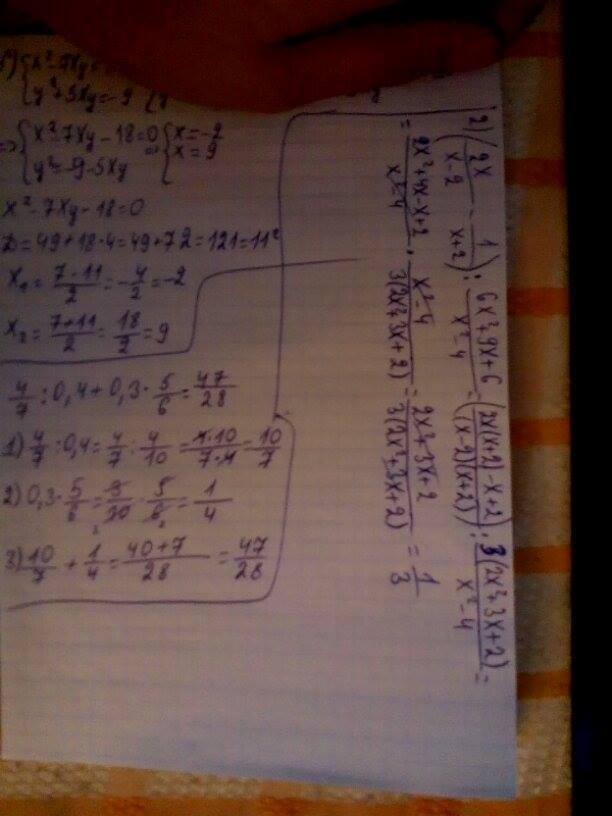 {x²-7xy=
y²+5xy=-9
=> {x²-7xy-18=0 => {x=-2
y²=-9-5xy x=9
x²-7xy-18=0
D=49+18·4=49+72=121=11²
x₁=(7-11)/2=-4/2=-2
x₂=(7+11)/2=18/2=9
4/7:0,4+0,3·5/6=47/28
1) 4/7:0,4=4/7:4/10=(4·10)/(7·4)=10/7
2) 0,3·5/6=3/10·5/6=1/4
3) 10/7+1/4=(40+7)/28=47/28
2) (2x/(x-2) - 1/(x+2)) : (6x²+9x+6)/(x²-4) = (2x(x+2)-x+2)/((x-2)(x+2)) : 3(2x²+3x+2)/(x²-4) =
= (2x²+4x-x+2)/(x²-4) · (x²-4)/(3(2x²+3x+2)) = (2x²+3x+2)/(3(2x²+3x+2)) = 1/3